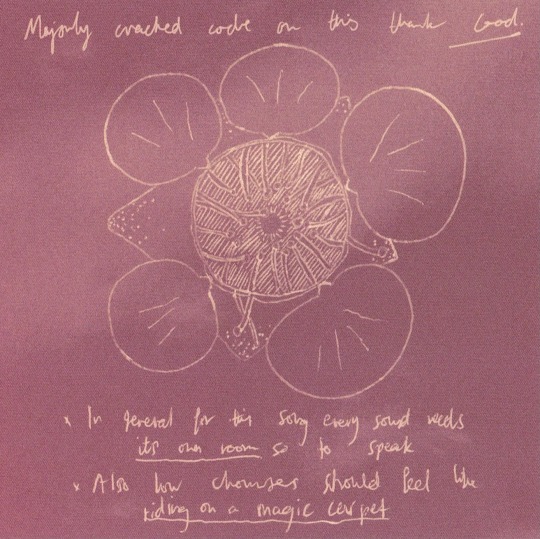 Majorly cracked code on this thank God.
x In general for this song every sound needs
its own room so to speak
x Also how chorusses should feel like
riding on a magic carpet